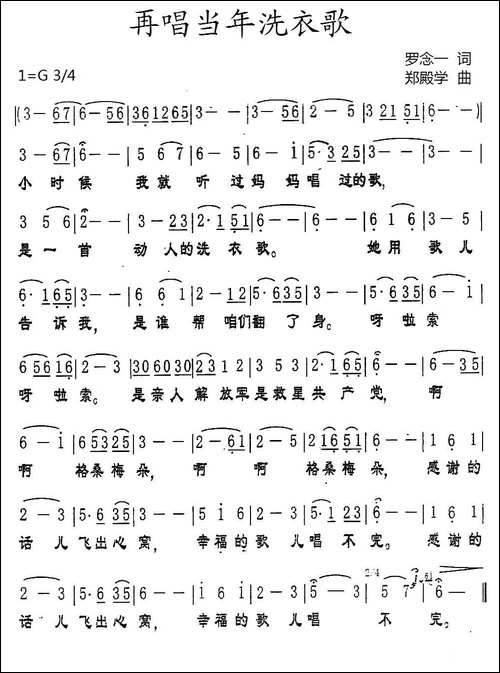 再唱当年洗衣歌
罗念一 词
1=G 3/4
郑殿学 曲
‖(3— 67 | 6— 56 | 361265 | 3—— | 3—— | 3—56 | 2·65 | 3 21 51 | 6——)|
3— 67 | 5 6 7 | 6— 56 | 6— i | 5·3 25 | 3—— | 3—— |
小 时 候 我 就 听 过妈 妈唱 过的歌,
3 5 6 | 2—— | 3—23 | 2·1 51 | 6—— | 6—— | 6 1 6 | 3—5 |
是 一 首 动 人的洗 衣 歌。 她用 歌儿
6·165 | 3—— | 6 6 1 | 2—12 | 5·635 | 2—3 | 5·635 | 6—i |
告 诉我, 是谁 帮 咱们翻 了 身。呀啦索
65616 | 2—3 | 306030 | 2312 | 3 5 3 | 2·123 | 6—— | 6—35 |
呀 啦索。 是亲人 解 放军是救星共 产 党, 啊
6—i | 65325 | 3—— | 2—61 | 2—3 | 21651 | 6—— | 1 6 1 |
啊 格桑梅 朵, 啊 啊 格桑梅 朵, 感谢的
2—3 | 5·635 | 3—— | 5 i 6 | 2—3 | 5·123 | 6—— | 1 6 1 |
话 儿飞出心 窝, 幸福的歌 儿唱 不 完。 感谢的
2—3 | 5·635 | 6—— | i 6 i | 2—3 | 5— | 5 7 | 6— ‖
话 儿飞出心 窝, 幸福的歌 儿唱 不 完。